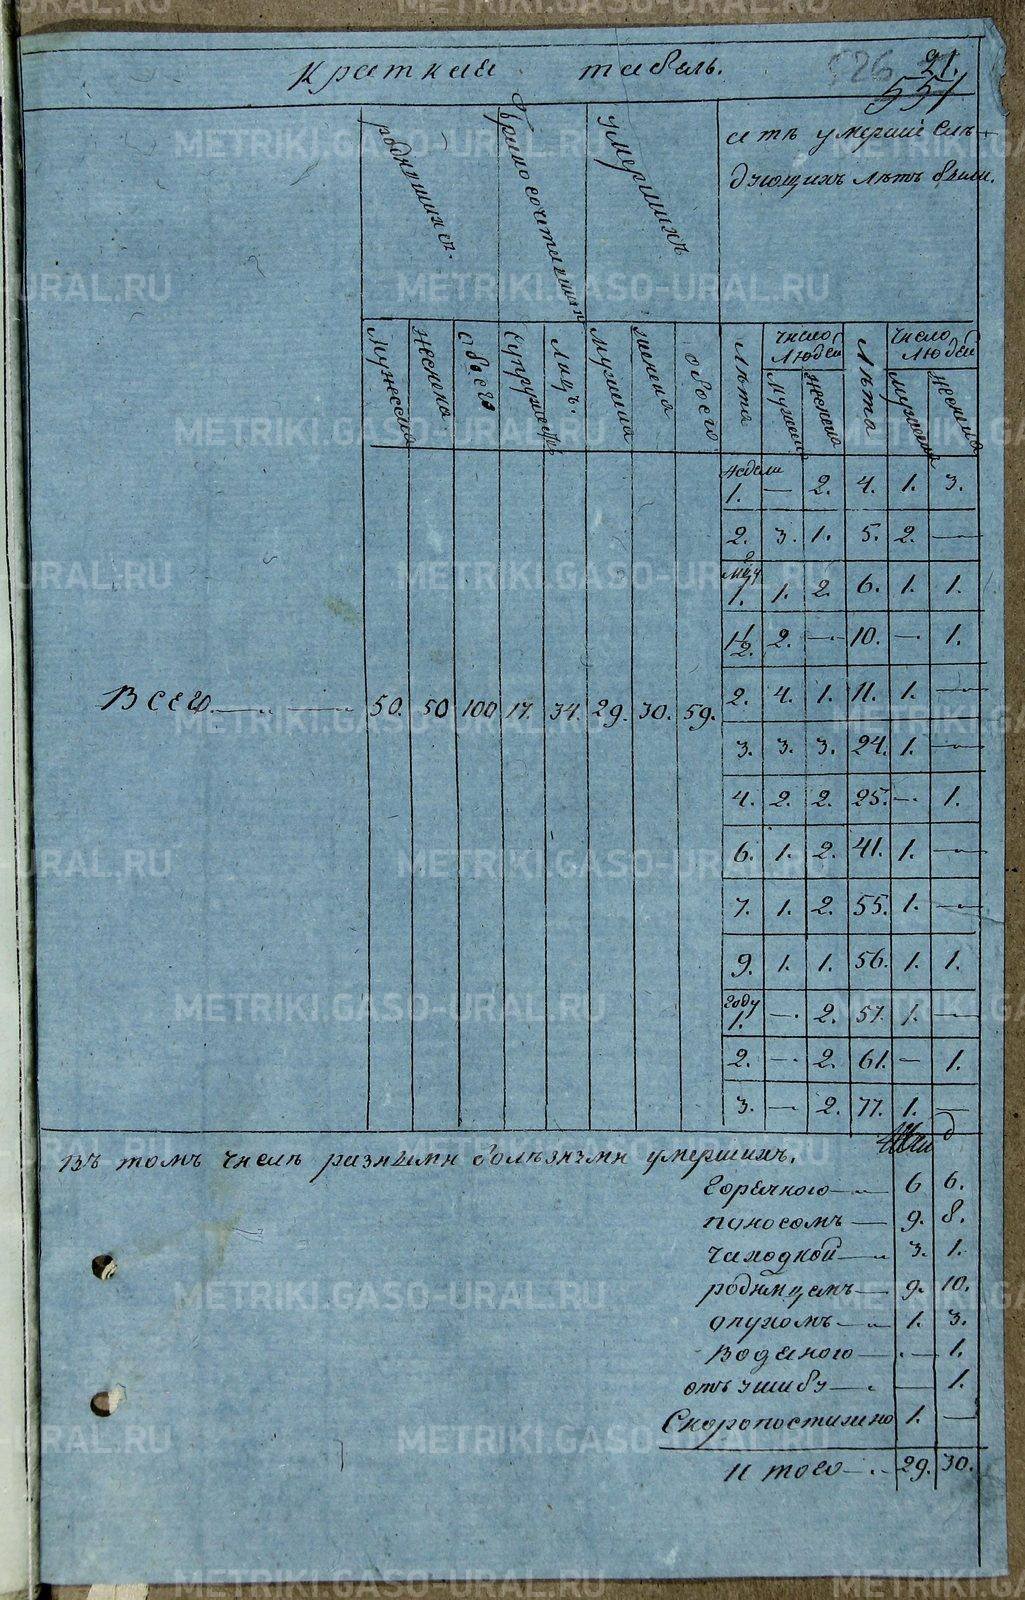 21.
526
551
Краткая табель.
родившихся.
бракосочетавших
умершихъ
изъ умершихъ слѣ-
дующихъ лѣтъ были.
Мужеска Женска обоего супружествъ лицъ. мужеска женска обоего Лѣта число людей Лѣта число людей
мужеска женска мужеска женска
недели
1. — 2. 4. 1. 3.
2. 3. 1. 5. 2. —
мцу
1. 1. 2. 6. 1. 1.
1½. 2. — 10. — 1.
2. 4. 1. 11. 1. —
Всего. — 50. 50 100 17. 34. 29. 30. 59.
3. 3. 3. 24. 1. —
4. 2. 2. 25. — 1.
6. 1. 2. 41. 1. —
7. 1. 2. 55. 1. —
9. 1. 1. 56. 1. 1.
году
1. — 2. 57. 1. —
2. — 2. 61. — 1.
3. — 2. 77. 1. —
Въ томъ числѣ разными болѣзнями умершихъ.
горячкою — 6 6.
поносомъ — 9. 8.
чахоткой — 3. 1.
родимцемъ — 9. 10.
опухомъ — 1. 3.
Водяною — — 1.
отъ ушибу — — 1.
Скоропостижно 1. —
Итого — 29. 30.
METRIKI.GASO-URAL.RU